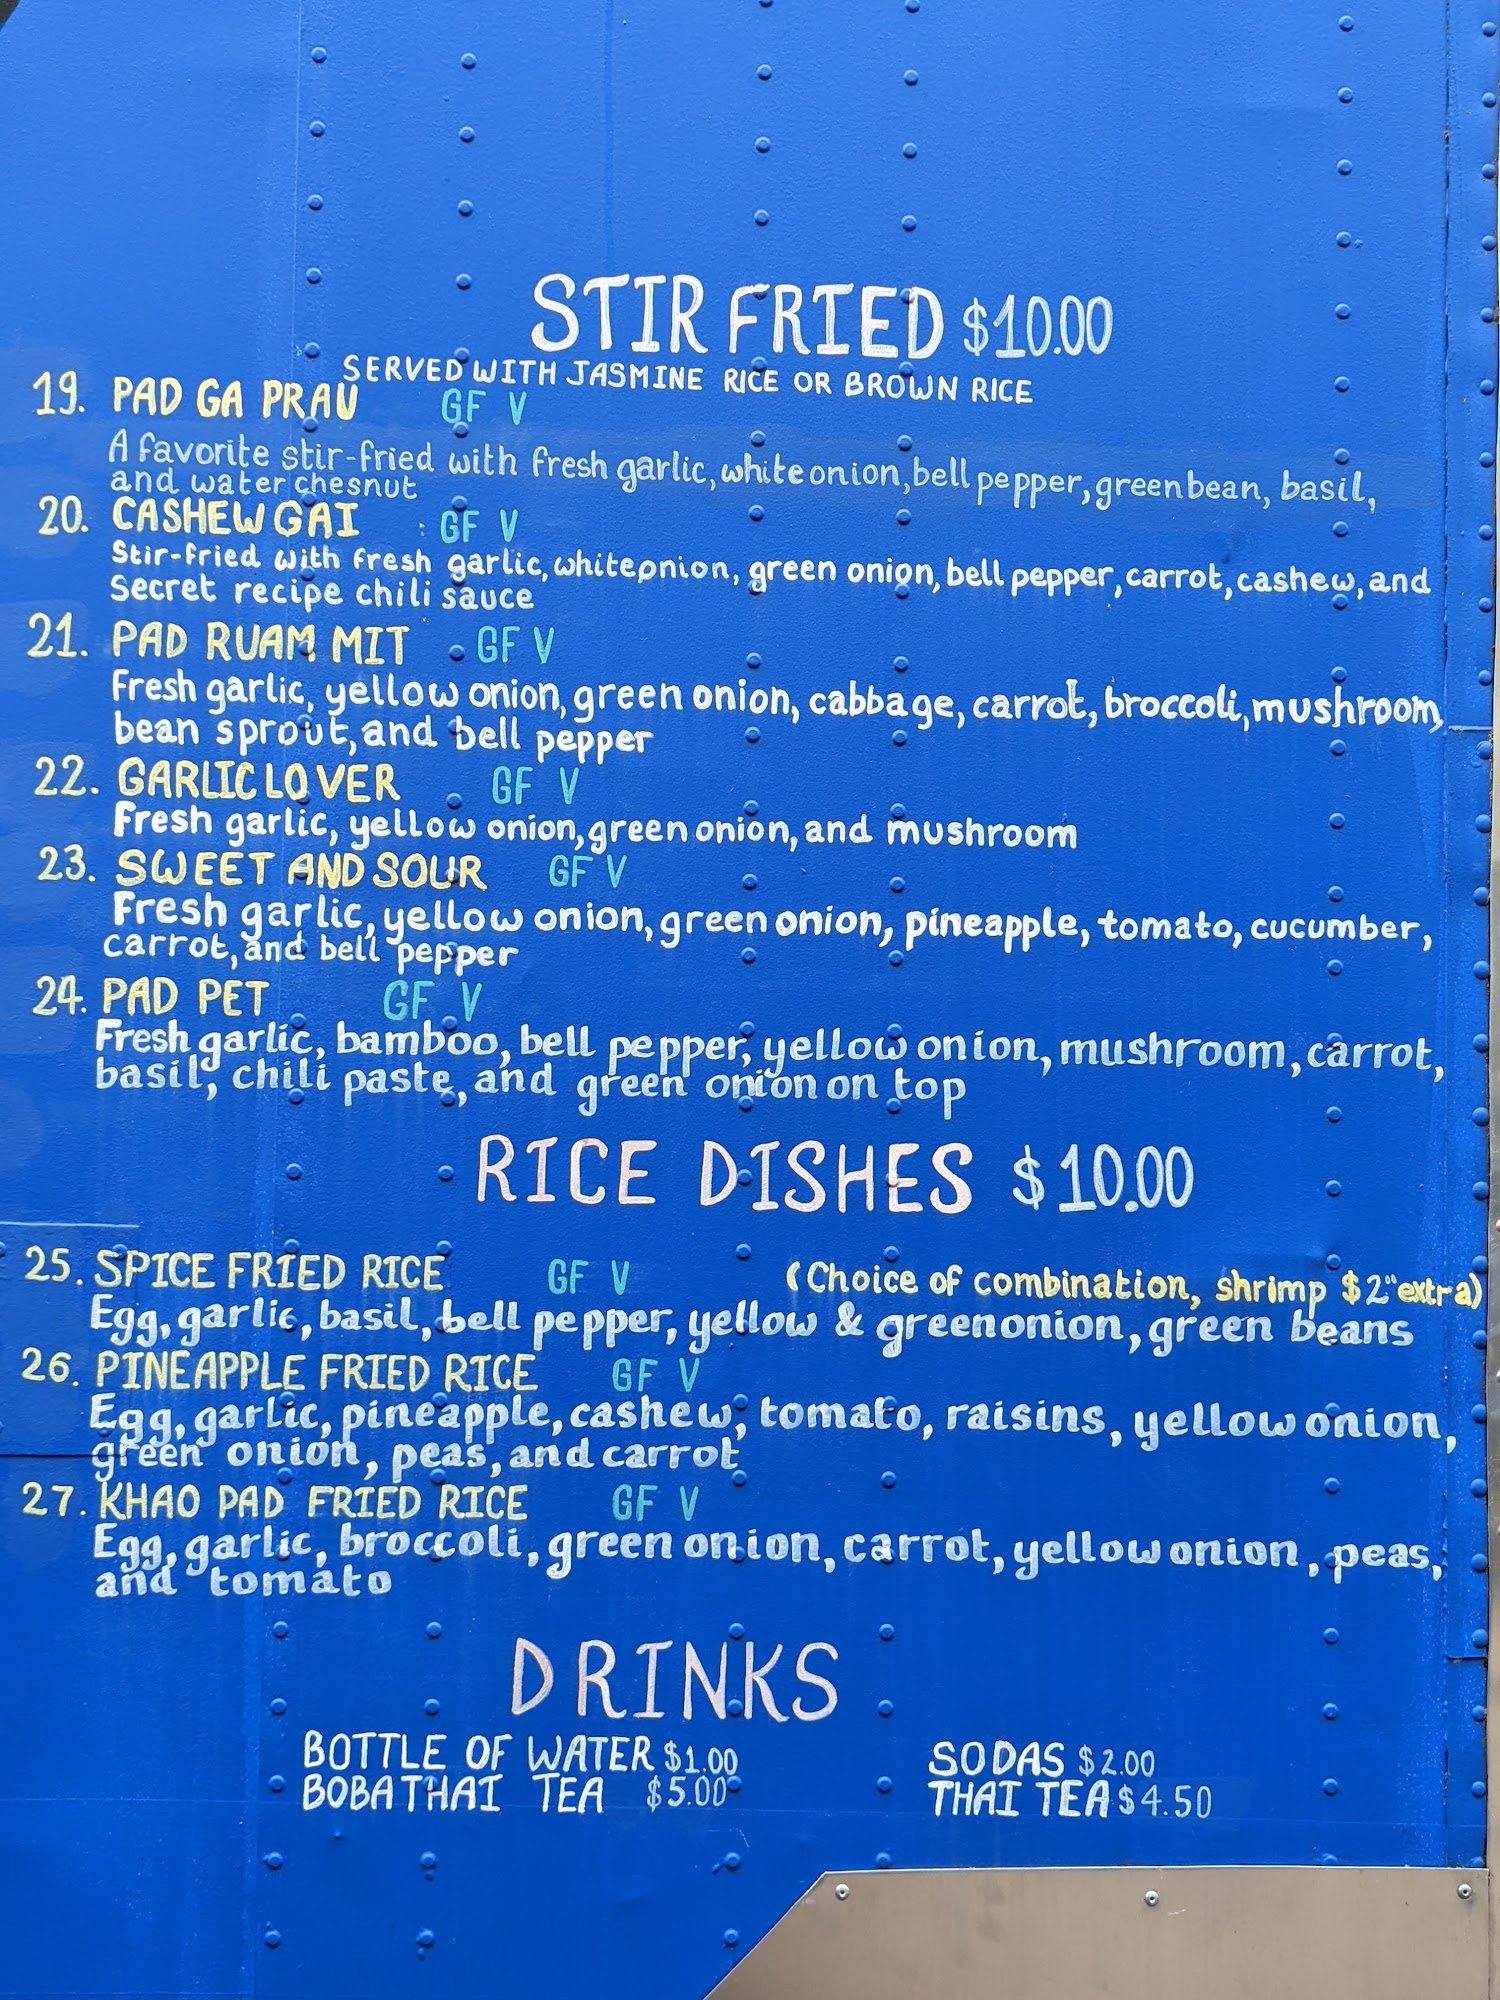 STIR FRIED $10.00
SERVED WITH JASMINE RICE OR BROWN RICE
19. PAD GA PRAU GF V
A favorite stir-fried with fresh garlic, white onion, bell pepper, green bean, basil,
and water chesnut
20. CASHEW GAI GF V
Stir-fried with fresh garlic, white onion, green onion, bell pepper, carrot, cashew, and
Secret recipe chili sauce
21. PAD RUAM MIT GF V
Fresh garlic, yellow onion, green onion, cabbage, carrot, broccoli, mushroom,
bean sprout, and bell pepper
22. GARLIC LOVER GF V
Fresh garlic, yellow onion, green onion, and mushroom
23. SWEET AND SOUR GF V
Fresh garlic, yellow onion, green onion, pineapple, tomato, cucumber,
carrot, and bell pepper
24. PAD PET GF V
Fresh garlic, bamboo, bell pepper, yellow onion, mushroom, carrot,
basil, chili paste, and green onion on top
RICE DISHES $10.00
25. SPICE FRIED RICE GF V (Choice of combination, shrimp $2.00 extra)
Egg, garlic, basil, bell pepper, yellow & green onion, green beans
26. PINEAPPLE FRIED RICE GF V
Egg, garlic, pineapple, cashew, tomato, raisins, yellow onion,
green onion, peas, and carrot
27. KHAO PAD FRIED RICE GF V
Egg, garlic, broccoli, green onion, carrot, yellow onion, peas,
and tomato
DRINKS
BOTTLE OF WATER $1.00 SODAS $2.00
BOBA THAI TEA $5.00 THAI TEA $4.50